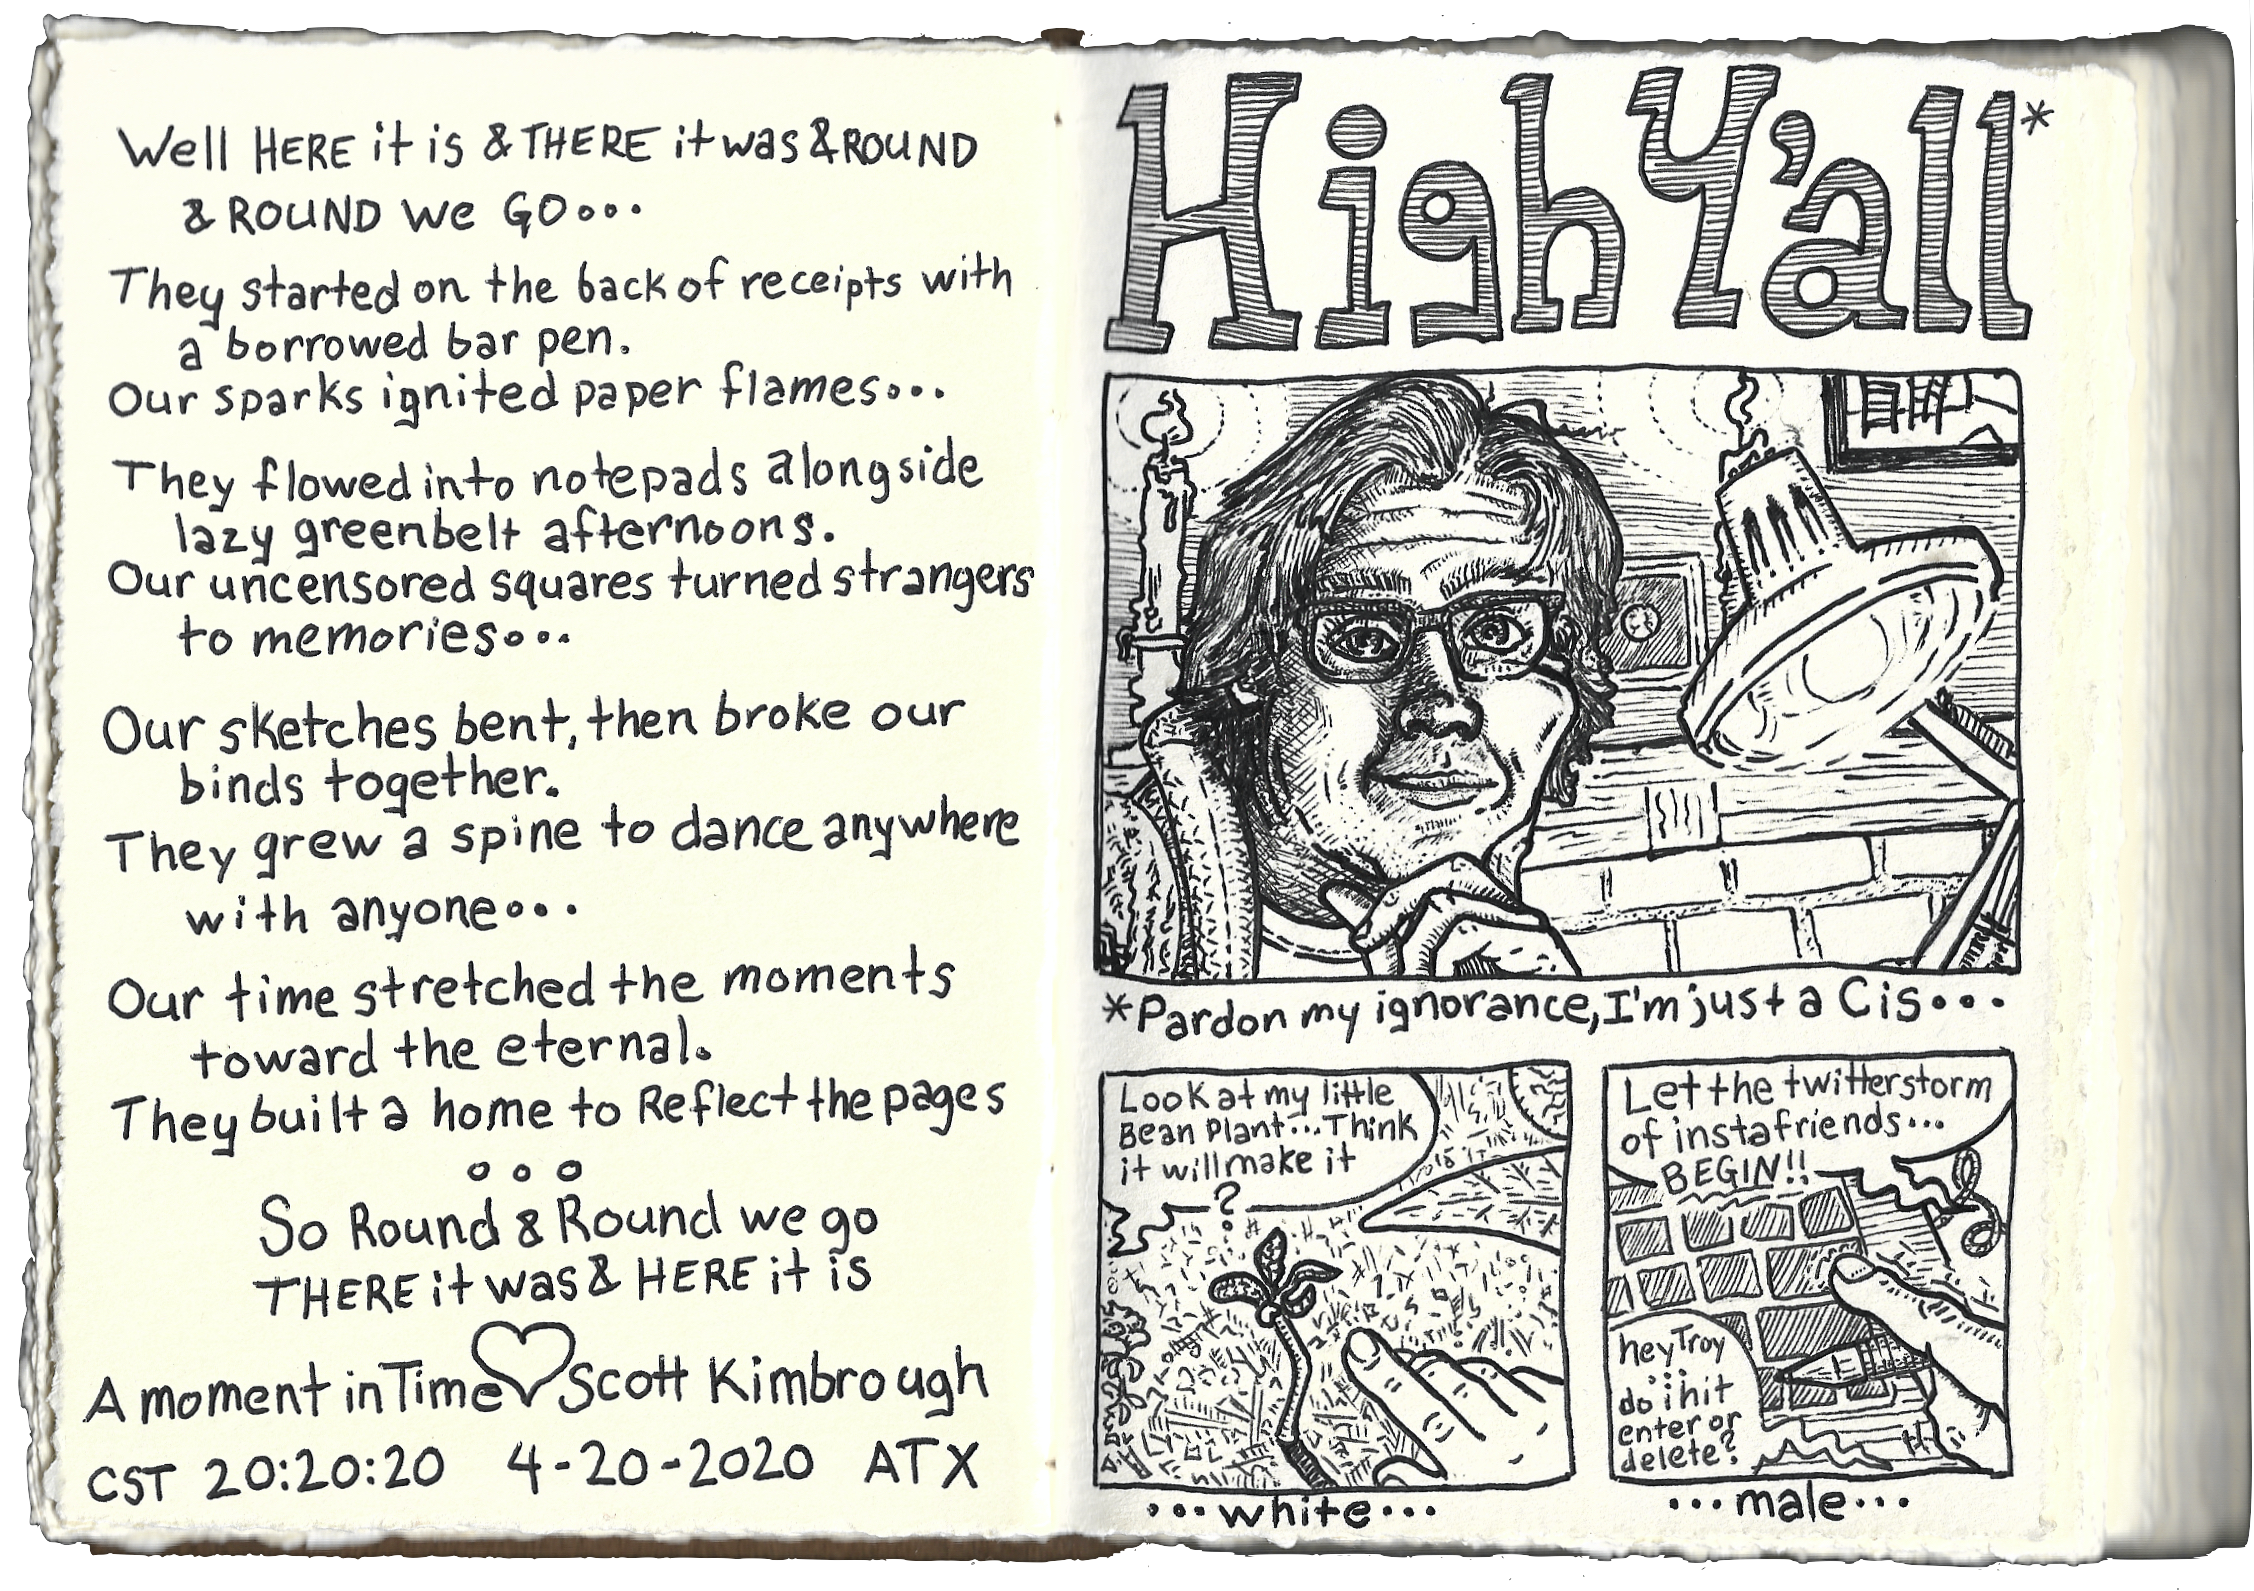 Well HERE it is & THERE it was & ROUND
& ROUND we GO...
They started on the back of receipts with
a borrowed bar pen.
Our sparks ignited paper flames...
They flowed into notepads alongside
lazy greenbelt afternoons.
Our uncensored squares turned strangers
to memories...
Our sketches bent, then broke our
binds together.
They grew a spine to dance anywhere
with anyone...
Our time stretched the moments
toward the eternal.
They built a home to Reflect the pages
...
So Round & Round we go
THERE it was & HERE it is
A moment in Time ♡ Scott Kimbrough
CST 20:20:20 4-20-2020 ATX
High Y'all*
*Pardon my ignorance, I'm just a Cis...
Look at my little
Bean Plant... Think
it will make it
?
...white...
Let the twitterstorm
of instafriends...
BEGIN!!
hey Troy
...
do i hit
enter or
delete?
...male...